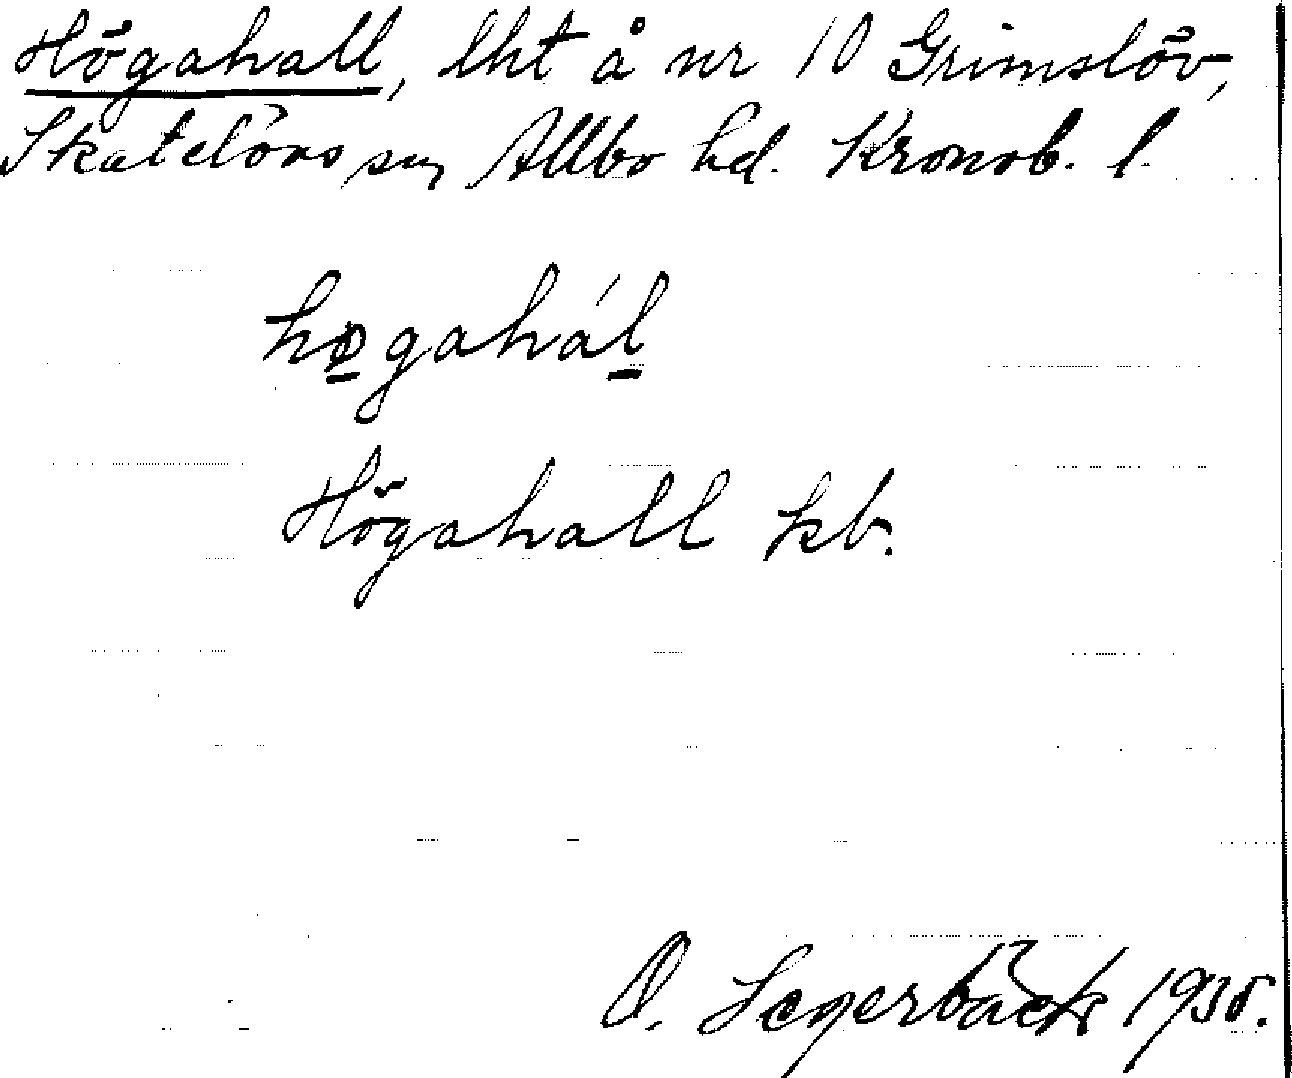 Högahall, lht å nr 10 Grimslöv,
Skatelövs sn, Allbo hd. Kronob. l.
høgahál
Högahall kb.
O. Segerbäck 1935.